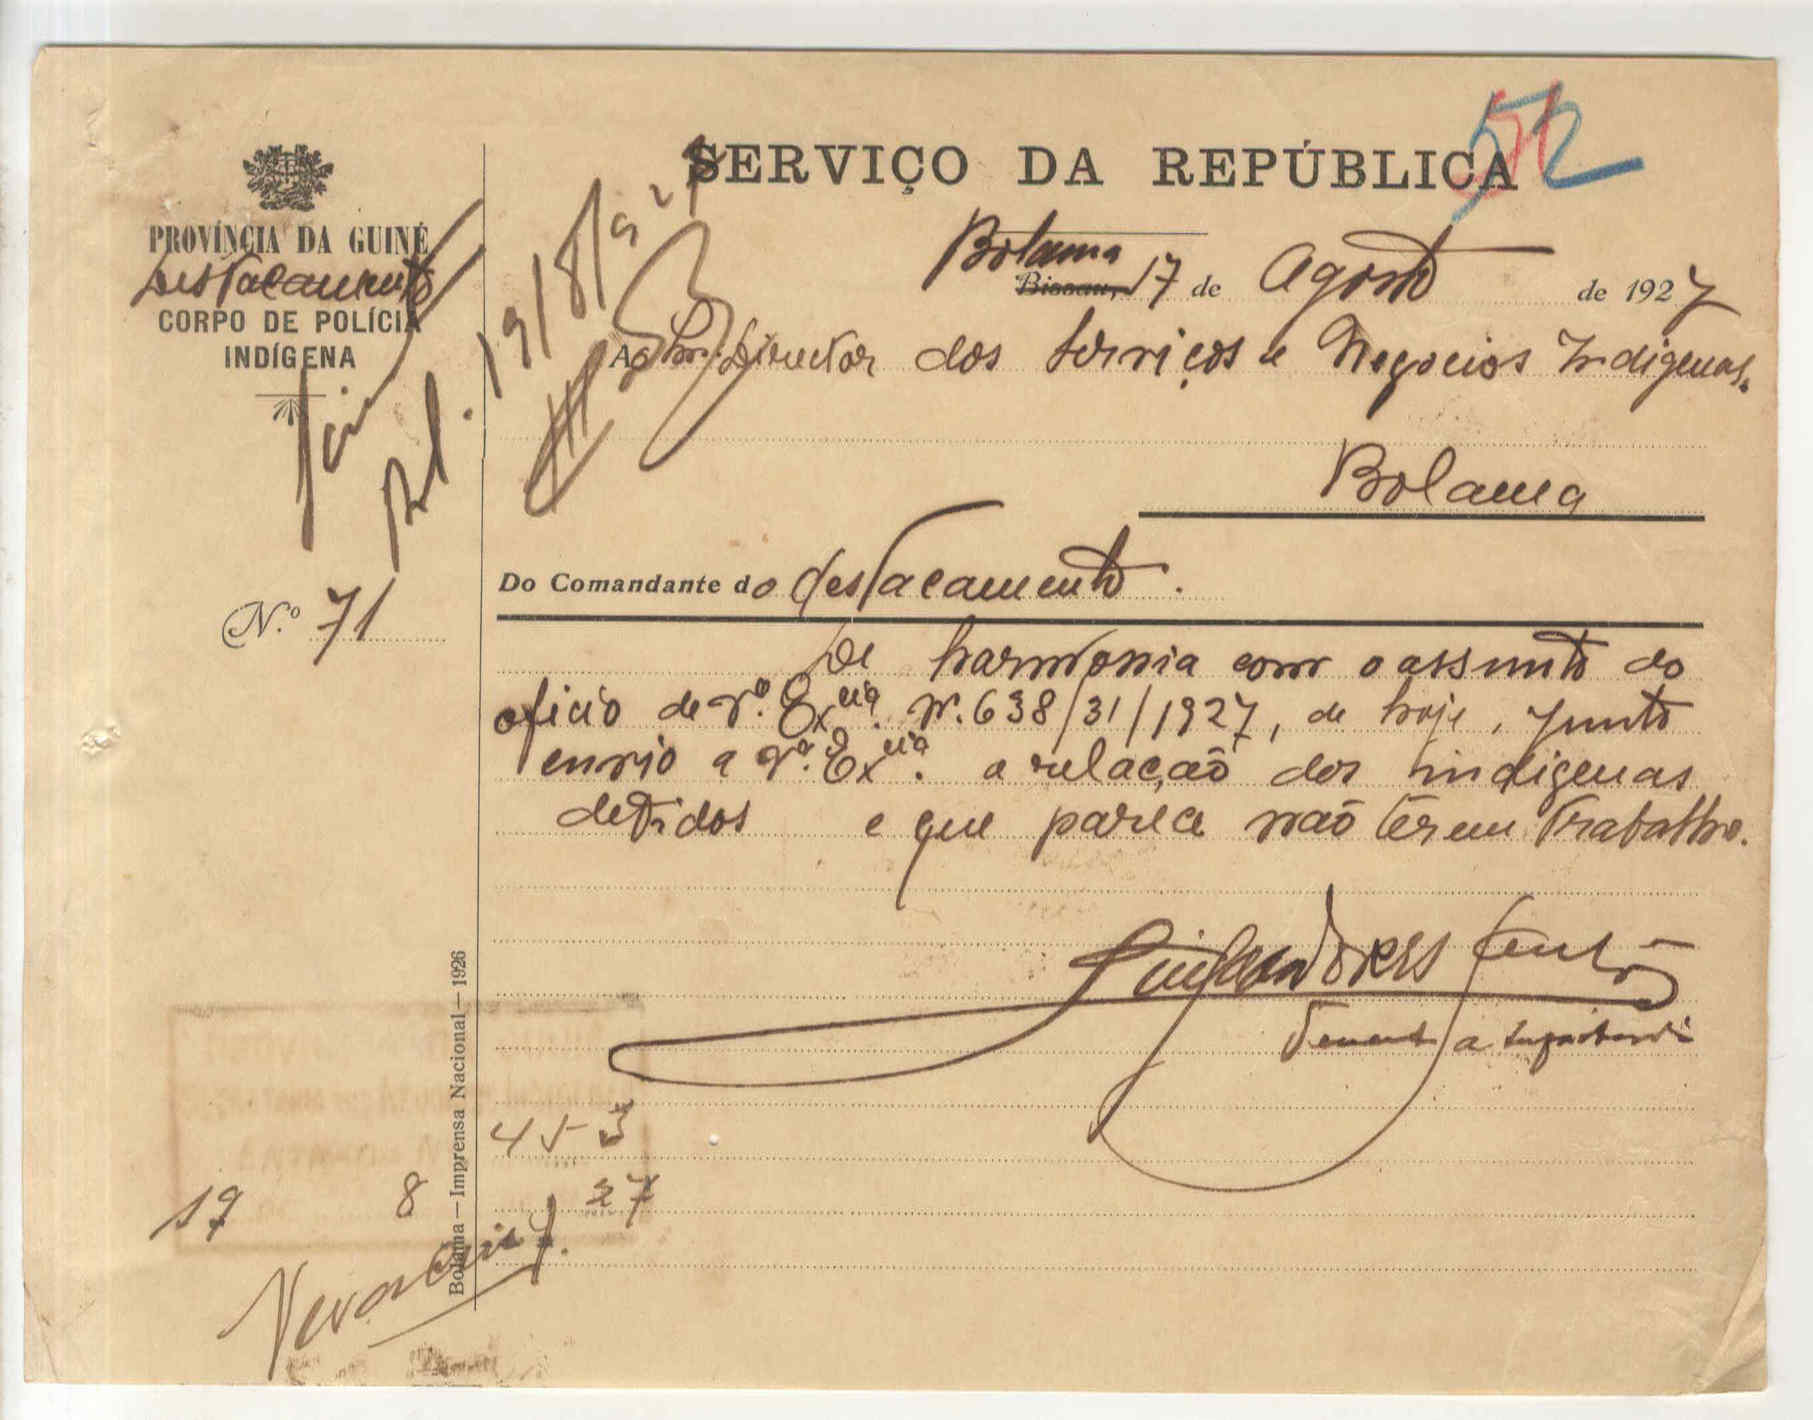 SERVIÇO DA REPÚBLICA
52
PROVÍNCIA DA GUINÉ
Destacamento
CORPO DE POLÍCIA
INDÍGENA
19/8/927
Bolama
Bissau, 17 de Agosto de 1927
Ao Snr. Director dos Serviços e Negocios Indigenas.
Bolama
Do Comandante do destacamento.
N.º 71
De harmonia com o assunto do
oficio de V.ª Ex.cia N. 638/31/1927, de hoje, junto
envio a V.ª Ex.cia a relação dos indigenas
detidos e que parece não terem trabalho.
Tenente
453
19 8 27
Bolama — Imprensa Nacional — 1926